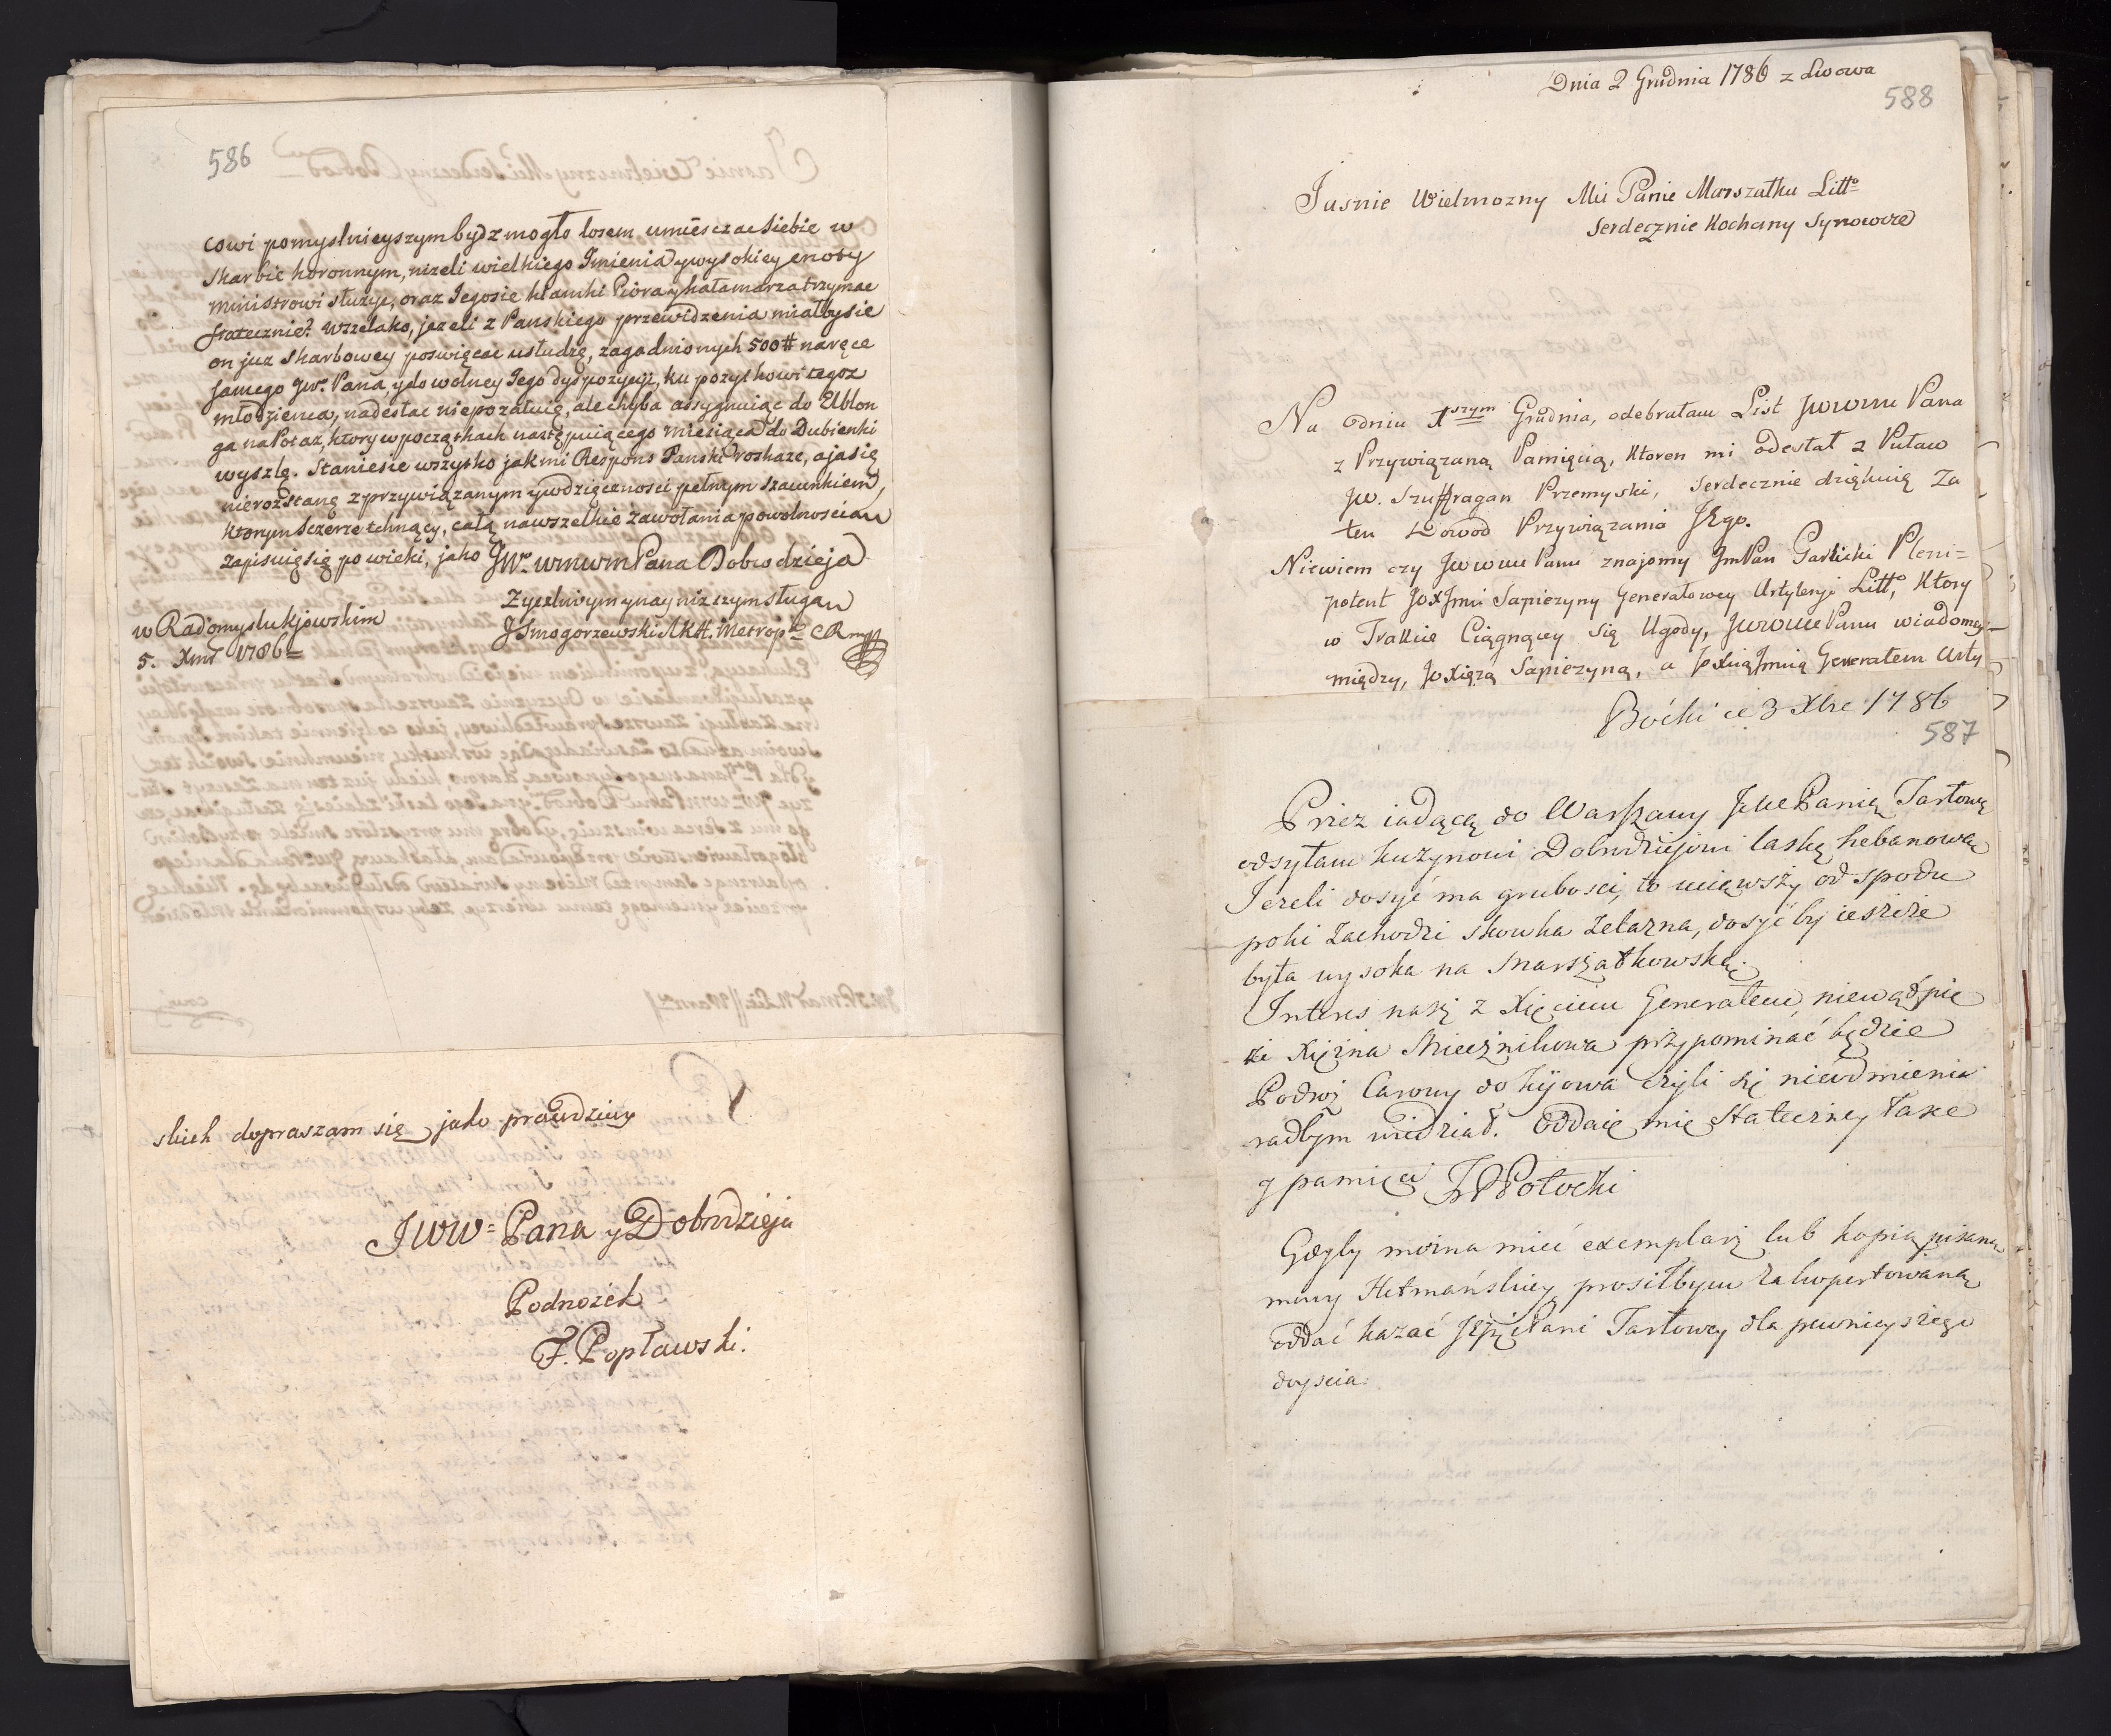 586
cowi pomyslnieyszym bydz mogło losem umiesczac siebie w
skarbie koronnym, nizeli wielkiego Imienia y wysokiey cnoty
Ministrowi służyc, oraz Jegosie klamki Piora y kałamarza trzymac
statecznie? wszelako, jezeli z Panskiego przewidzenia miałbysie
on juz skarbowey poswięcac usłudze, zagadnionych 500# na ręce
samego JW. Pana, y do wolney Jego dyspozycji, ku pozytkowi tegoz
młodzienca, nadesłac niepozałuię, ale chyba assygnuiąc do Elblon
ga na Potaz, ktory w początkach następuiącego miesiąca do Dubienki
wyszlę. Staniesie wszysko jak mi Respons Panski roskaze, a ja się
nierozstanę z przywiązanym y wdzięcznosci pełnym szacunkiem,
ktorym sczerze tchnący, całą na wszelkie zawołania powolnoscią
zapisuię się po wieki, jako JW. wmwm Pana Dobrodzieja
Zyczliwym y nayniższym sługą
w Radomyslu kijowskim J Smogorzewski AKH. Metrop
5. Xbra 1786
skich dopraszam się jako prawdziwy
JWW= Pana y Dobrodzieja
Podnożek
F. Popławski.
Dnia 2 Grudnia 1786 z Lwowa
588
Jasnie Wielmozny Mci Panie Marszałku Litto
Serdecznie Kochany Synowcze
Na odniu 1szym Grudnia, odebrałam List JWWM Pana
z Przywiązaną Pamięcią, Ktoren mi odesłał z Puław
JW. Szuffragan Przemyski, Serdecznie dziękuię Za
ten Dowod Przywiązania JEgo.
Niewiem czy JWWM Panu znajomy Jm Pan Garlicki Pleni=
potent JoXJmci Sapiezyny Generałowey Artyleryi Litto, Ktory
w Trakcie Ciągnącey się Ugody, JWWM Panu wiadomey
między, JoXiężą Sapiezyną, a JoXiąJmcią Generałem Arty
Boćki ce 3 Xbre 1786
587
Przez iadącą do Warszawy JWe Panią Tarłową
odsyłam kużynowi Dobrodziejowi laskę hebanową
Jezeli dosyć ma grubosci, to uciąwszy od spodu
poki zachodzi skowka żelazna, dosyć by ieszcze
była wysoka na Marszałkowską.
Interes nasz z Xięciem Generałem, niewątpię
że Xiężna Miecznikowa przypominać będzie
Podroż Carowy do Kijowa czyli się nieodmieniła
radbym wiedział. Oddaię mię stateczney łasce
y pamięci JPPotocki
Gdyby można mieć exemplarz lub kopią pisaną
mowy Hetmańskiey, prosiłbym zakopertowaną
oddać kazać JWJci Pani Tarłowey dla pewnieyszego
doyscia.